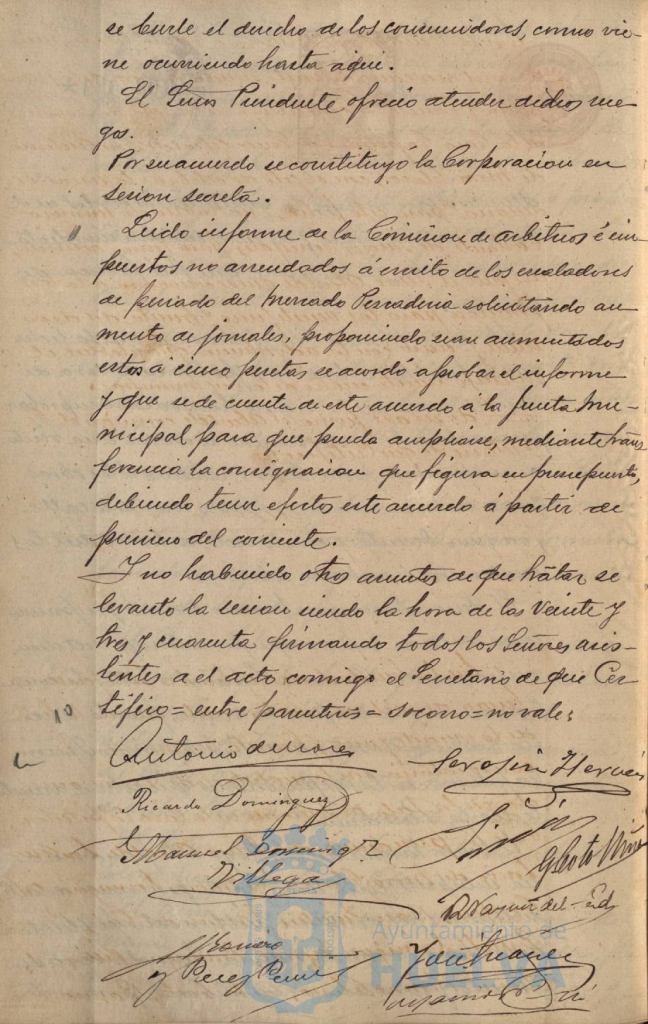 se burle el derecho de los consumidores, como vie-
ne ocurriendo hasta aqui.
El Señor Presidente ofreció atender dichos rue-
gos.
Por su acuerdo se constituyó la Corporacion en
sesion secreta.
Leido informe de la Comision de arbitrios é im-
puestos no arrendados á escrito de los
de pescado del Mercado Pescaderia solicitando au-
mento de jornales, proponiendo sean aumentados
estos á cinco pesetas se acordó aprobar el informe
y que se de cuenta de este acuerdo á la Junta Mu-
nicipal para que pueda ampliarse, mediante trans
ferencia la consignacion que figura en presupuesto,
debiendo tener efectos este acuerdo á partir de
primero del corriente.
Y no habiendo otros asuntos de que tratar se
levantó la sesion siendo la hora de las veinte y
tres y cuarenta firmando todos los Señores asis-
tentes a el acto conmigo el Secretario de que Cer-
tifico = entre parentesis = socorro = no vale:
10
Antonio de Mora
Serafin
Ricardo Dominguez
Manuel Domingz
Villega
Ramiro
y Perez
Ayuntamiento de
HUELVA